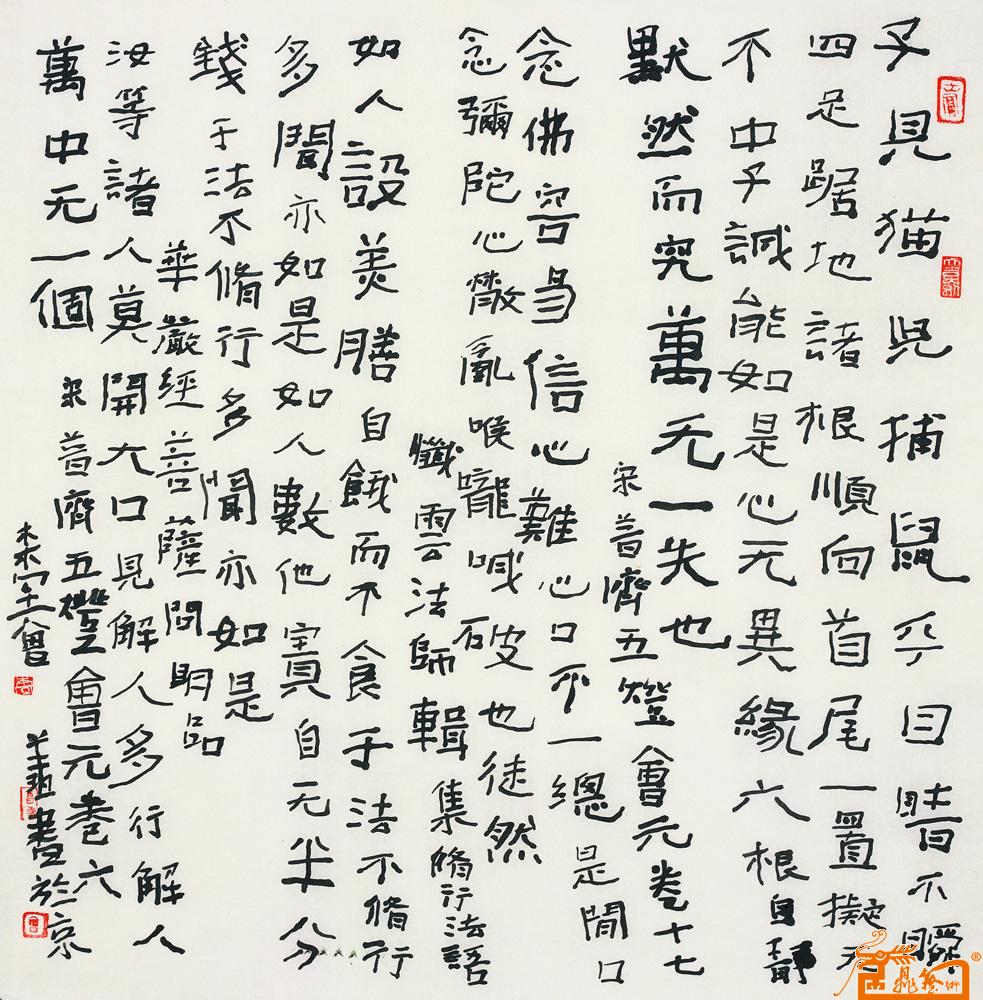 子見猫兒捕鼠乎目睛不瞬
四足踞地諸根順向首尾一置擬无
不中子誠能如是心无異緣六根自靜
默然而究萬无一失也
宋普濟五燈會元卷十七
念佛容易信心難心口不一總是閒口
念彌陀心散亂喉嚨喊破也徒然
懺雲法師輯集脩行法語
如人設美膳自餓而不食于法不脩行
多聞亦如是如人數他寶自无半分
錢于法不脩行多聞亦如是
華嚴經菩薩問明品
汝等諸人莫開大口見解人多行解人
萬中无一個
宋普濟五燈會元卷六
書於京